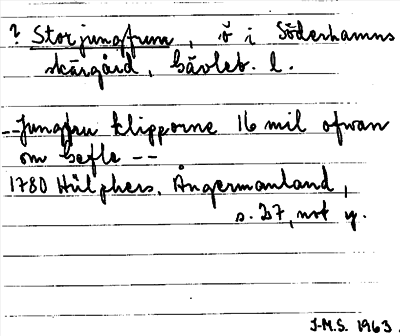 ? Storjungfrun, ö i Söderhamns
skärgård, Gävleb. l.
-- Jungfru klipporne 16 mil ofwan
om Gefle --
1780 Hülphers. Ångermanland,
s. 27, not y.
J-M.S. 1963.